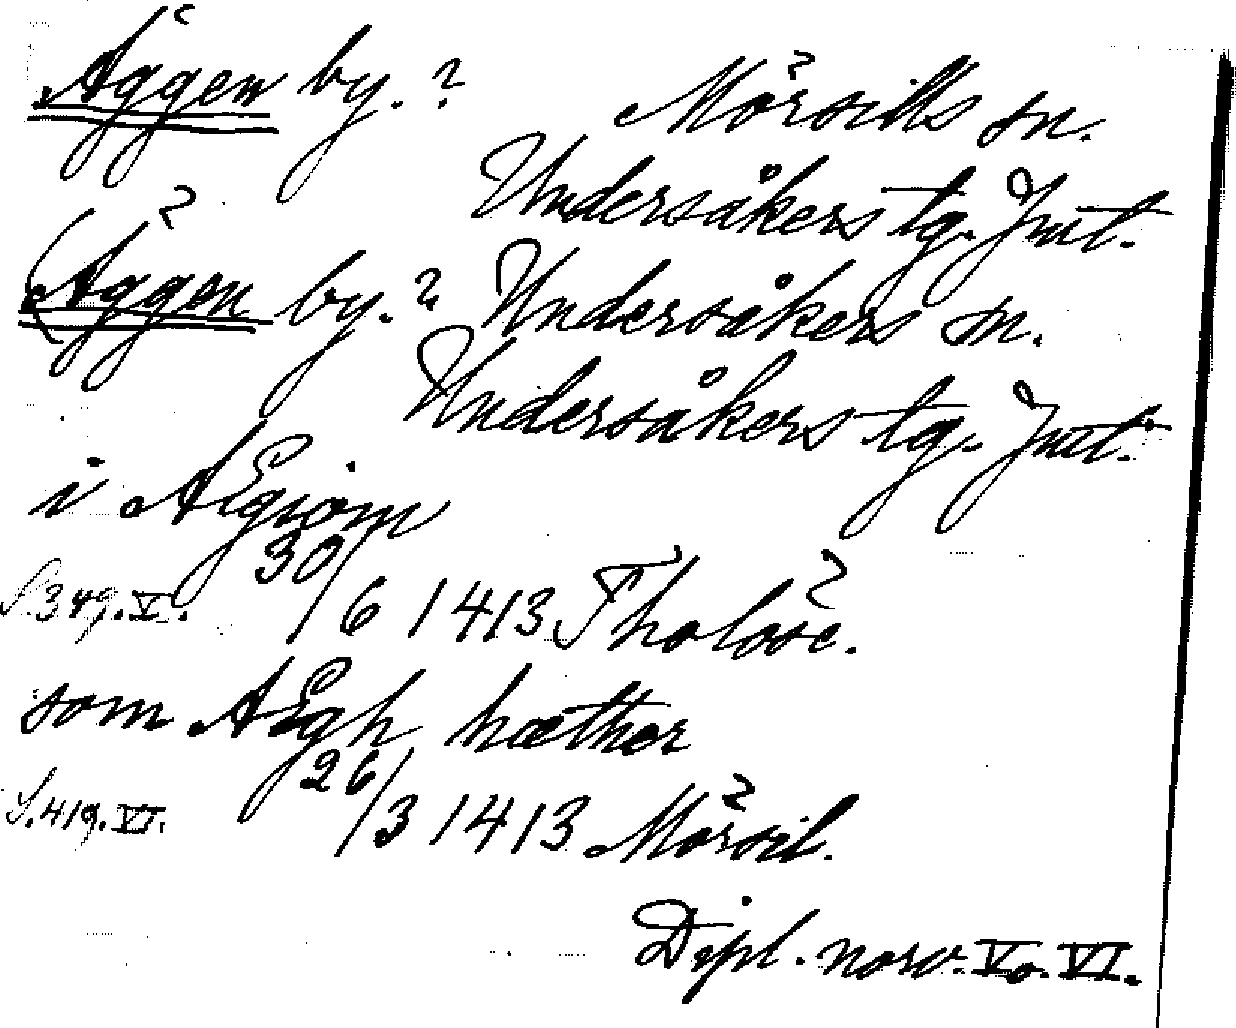 Äggen by.? Mörsills sn.
Undersåkers tg. Jmt.
(Äggen by.? Undersåkers sn.
Undersåkers tg. Jmt.
i Ægiom
S.349.V. 30/6 1413 Tholöse.
som Ægh hæther
S.419.VI. 26/3 1413 Mörsil.
Dipl. norv. V o. VI.